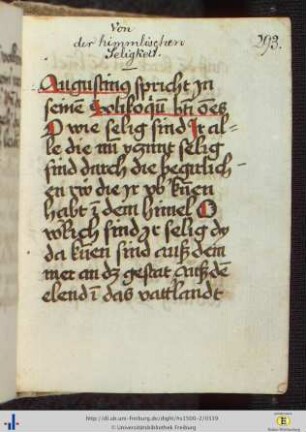 Von
der himmlischen
Seligkeit.
293.
Augustinus spricht jn
seinē Solikoquū
O wie selig sind Jr al-
le die nu selig
sind durch die begirlich-
en rw die Jr vbkūen
habt ī dem himel O
wlich sind Jr selig dy
da kūen sind auß dem
mer an dz gestat auß dē
elend ī das vattlandt
http://dl.ub.uni-freiburg.de/diglit/hs1500-2/0539
© Universitätsbibliothek Freiburg